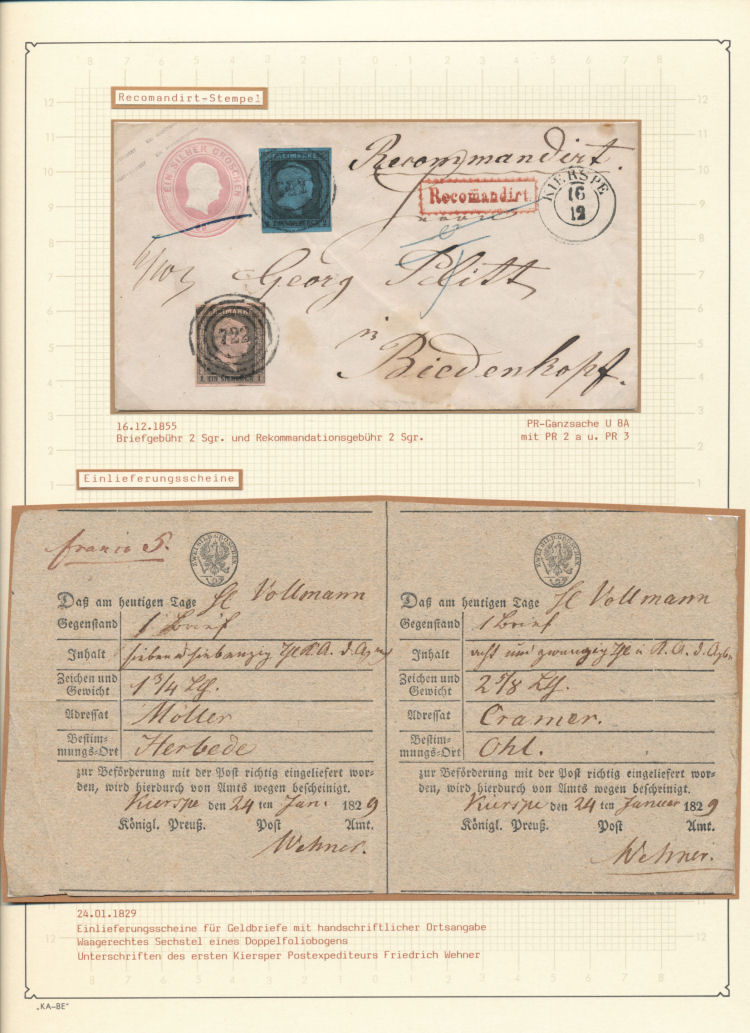 Recomandirt-Stempel
EIN SILBER GROSCHEN
FREIMARKE
Recommandirt.
Recomandirt.
KIERSPE
16
12
Georg Plitt
FREIMARKE
722
1 EIN SILBERGR. 1
in
Biedenkopf.
16.12.1855
Briefgebühr 2 Sgr. und Rekommandationsgebühr 2 Sgr.
PR-Ganzsache U 8A
mit PR 2 a u. PR 3
Einlieferungsscheine
franco 5.
ZWEI SILB: GROSCHEN
Daß am heutigen Tage H Vollmann
Gegenstand 1 Brief
Inhalt sieben u siebenzig
Zeichen und
Gewicht 1 3/4 Lth.
Adressat Möller
Bestim-
mungs-Ort Herbede
zur Beförderung mit der Post richtig eingeliefert wor-
den, wird hierdurch von Amts wegen bescheinigt.
Kierspe den 24 ten Jan. 1829
Königl. Preuß. Post Amt.
Wehner.
ZWEI SILB: GROSCHEN
Daß am heutigen Tage H Vollmann
Gegenstand 1 Brief
Inhalt acht und zwanzig
Zeichen und
Gewicht 2 5/8 Lth.
Adressat Cramer.
Bestim-
mungs-Ort Ohl.
zur Beförderung mit der Post richtig eingeliefert wor-
den, wird hierdurch von Amts wegen bescheinigt.
Kierspe den 24 ten Januar 1829
Königl. Preuß. Post Amt.
Wehner.
24.01.1829
Einlieferungsscheine für Geldbriefe mit handschriftlicher Ortsangabe
Waagerechtes Sechstel eines Doppelfoliobogens
Unterschriften des ersten Kiersper Postexpediteurs Friedrich Wehner
„KA-BE"